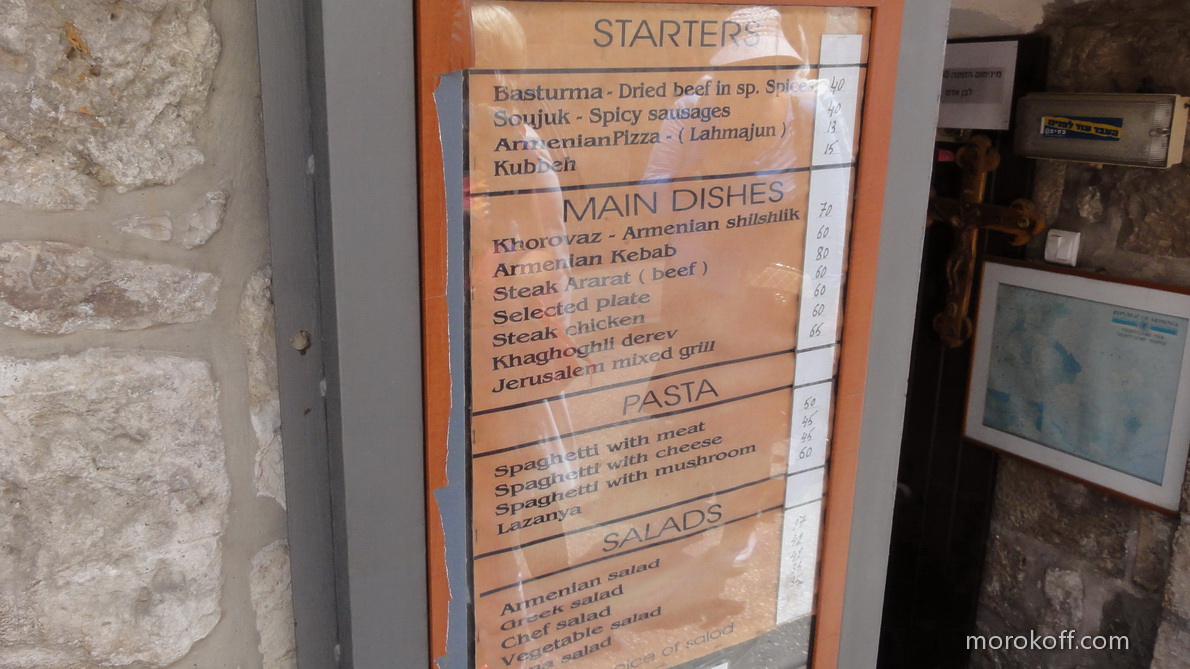 STARTERS
Basturma - Dried beef in sp. Spices 40
Soujuk - Spicy sausages 40
ArmenianPizza - ( Lahmajun ) 13
Kubbeh 15
MAIN DISHES
Khorovaz - Armenian shilshlik 70
Armenian Kebab 60
Steak Ararat ( beef ) 80
Selected plate 60
Steak chicken 60
Khaghoghli derev 60
Jerusalem mixed grill 65
PASTA
Spaghetti with meat 50
Spaghetti with cheese 45
Spaghetti with mushroom 45
Lazanya 60
SALADS
Armenian salad
Greek salad
Chef salad
Vegetable salad
salad
of salad
מינימום הזמנה
לבן אדם
REPUBLIC OF ARMENIA
morokoff.com